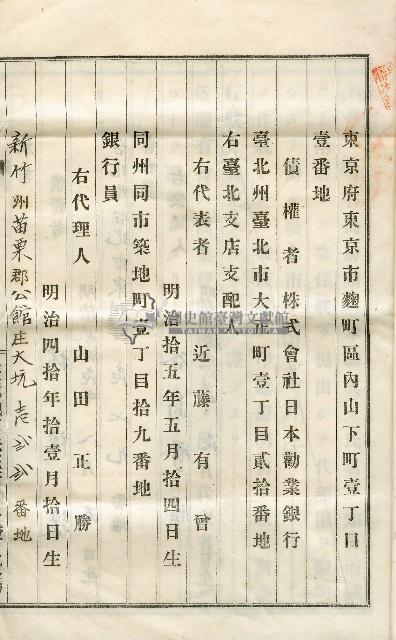 東京府東京市麴町區內山下町壹丁目
壹番地
債權者株式會社日本勸業銀行
臺北州臺北市大正町壹丁目貳拾番地
右臺北支店支配人
右代表者 近藤有曾
明治拾五年五月拾四日生
同州同市築地町壹丁目拾九番地
銀行員
右代理人 山田正勝
明治四拾年拾壹月拾日生
新竹州苗栗郡公館庄大坑 番地
史館臺灣文獻館
TAIWAN HISTORICA